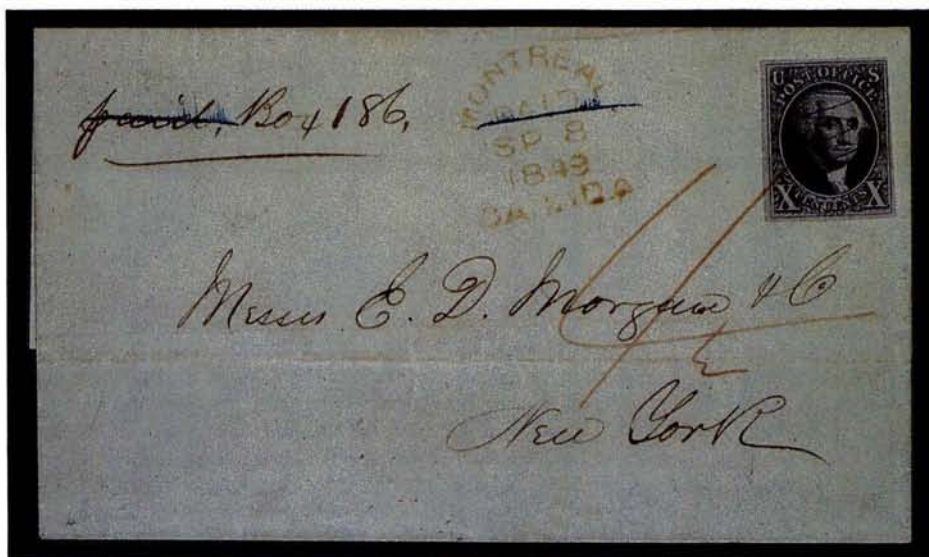 paid, Box 186,
MONTREAL
PAID
SP 8
1849
CANADA
U S
POST OFFICE
X TEN CENTS X
4½
Messrs E. D. Morgan & Co
New York